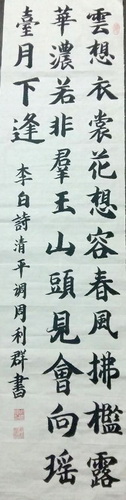 雲想衣裳花想容春風拂檻露
華濃若非羣玉山頭見會向瑤
臺月下逢
李白詩清平調周利群書